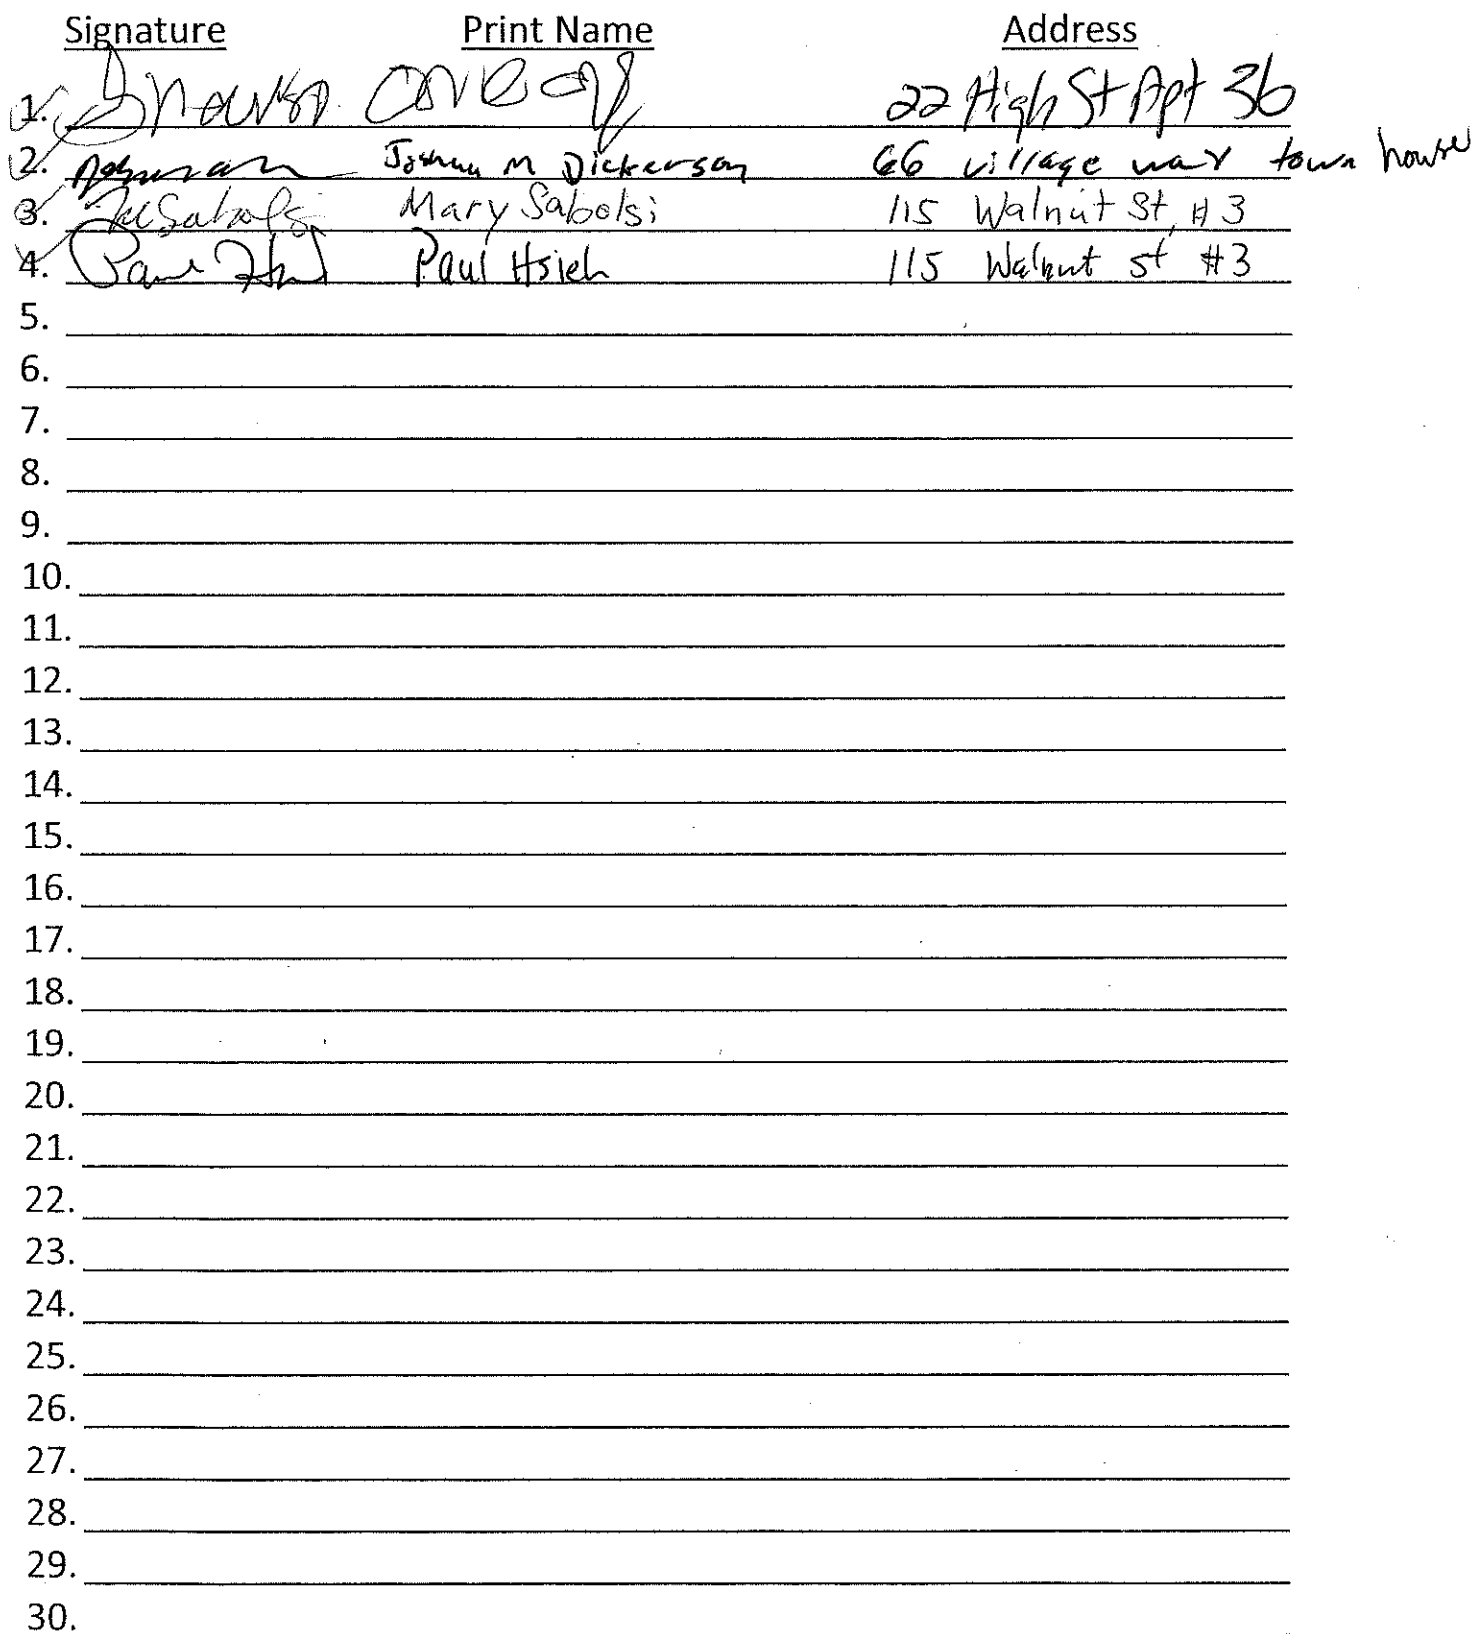 Signature Print Name Address
1. 22 High St Apt 3b
2. Joshua M Dickerson 66 village way town house
3. MSabolsi Mary Sabolsi 115 Walnut St, #3
4. Paul Hsieh 115 Walnut st #3
5.
6.
7.
8.
9.
10.
11.
12.
13.
14.
15.
16.
17.
18.
19.
20.
21.
22.
23.
24.
25.
26.
27.
28.
29.
30.